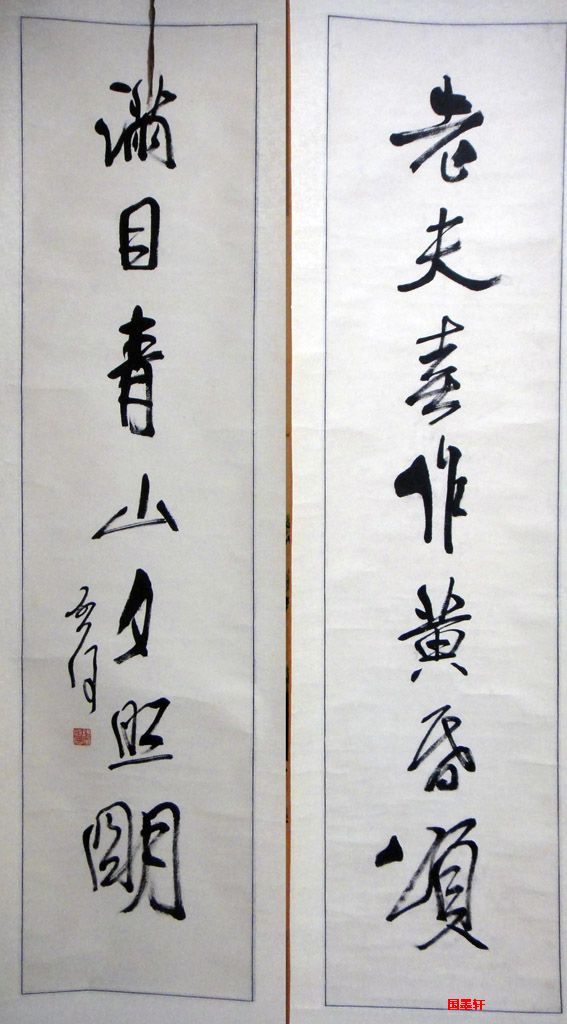 老夫喜作黄昏頌
滿目青山夕照朙
国墨轩